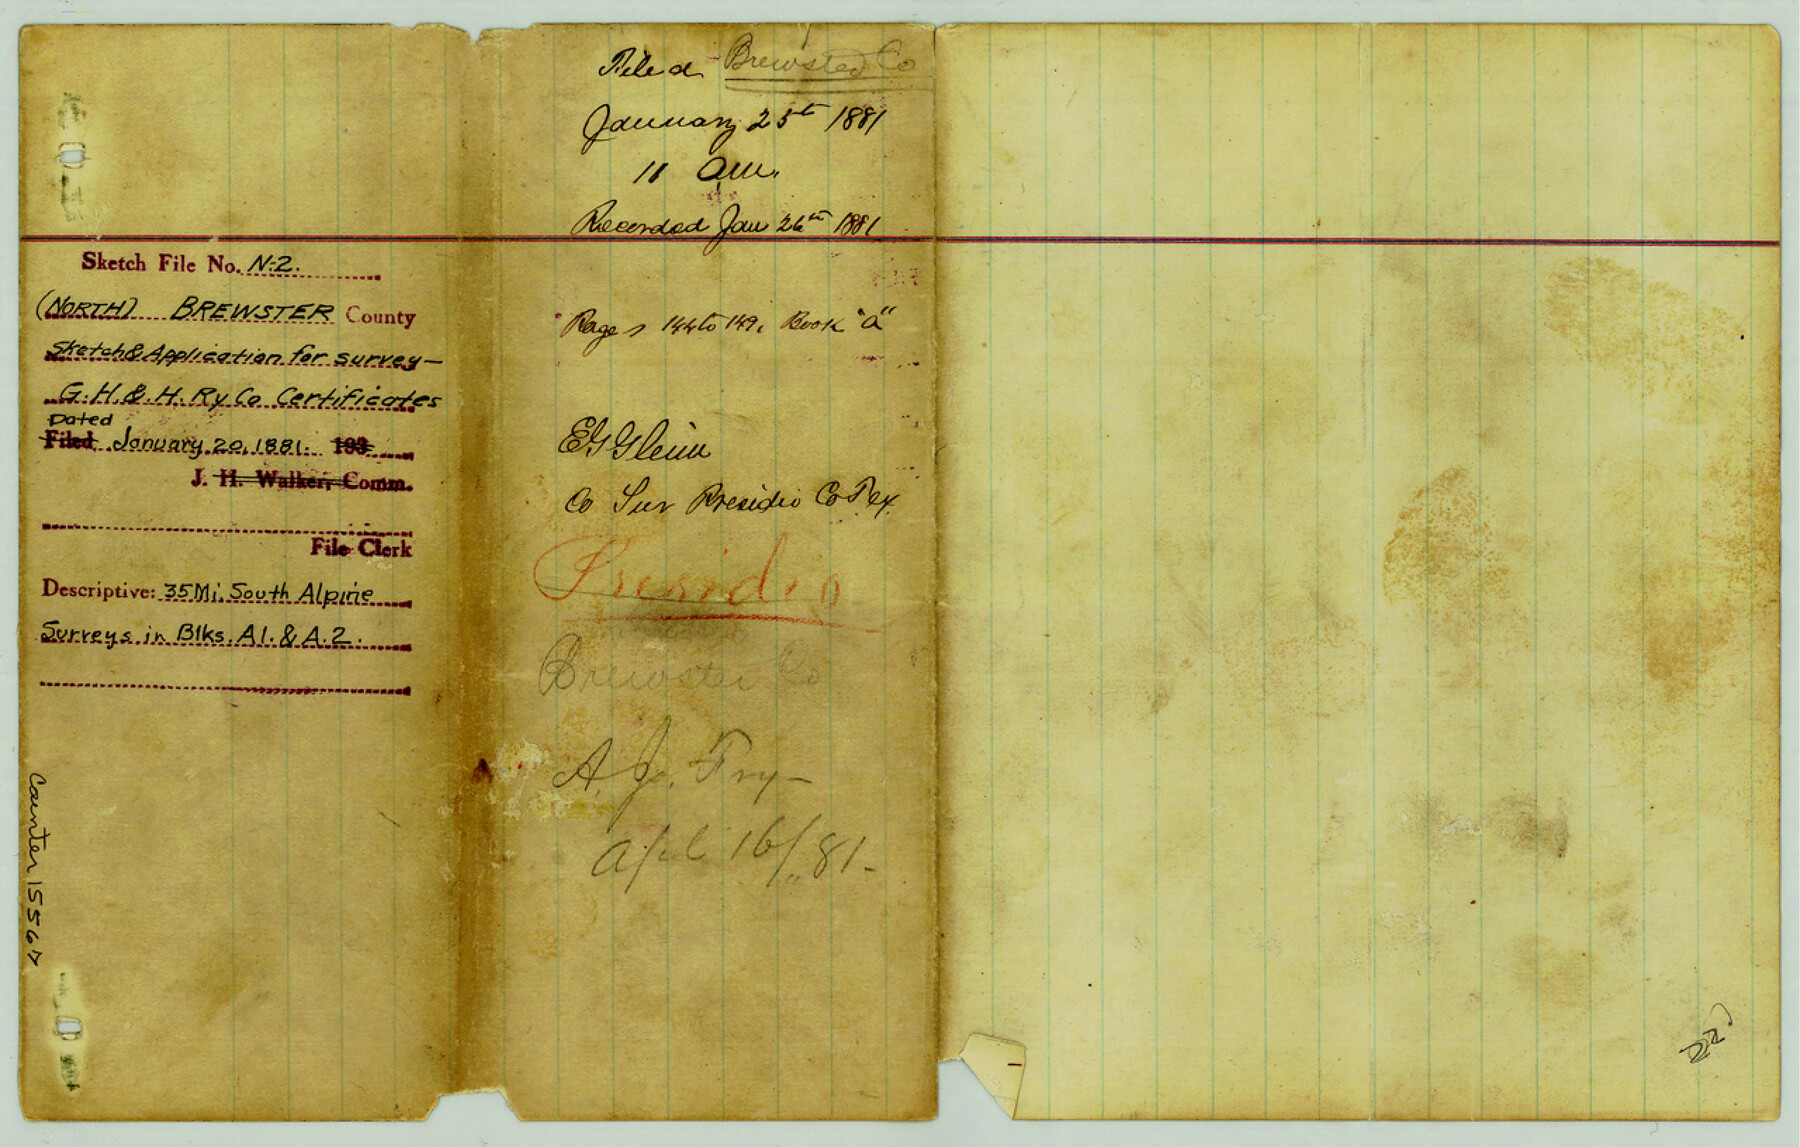 Sketch File No. N-2.
(NORTH) BREWSTER County
Sketch & Application for survey—
G.H.&.H. Ry Co Certificates
Dated
Filed January 20, 1881. 193
J. H. Walker, Comm.
File Clerk
Descriptive: 35 Mi. South Alpine
Surveys in Blks. A1. & A.2.
Counter 15567
Filed Brewster Co
January 25th 1881
11 am.
Recorded Jan 26th 1881
Pages 144 to 149. Book "a"
E G Gleim
Co Sur Presidio Co Tex.
Presidio
Brewster Co
A. J. Fry—
Apl 16/.. 81-